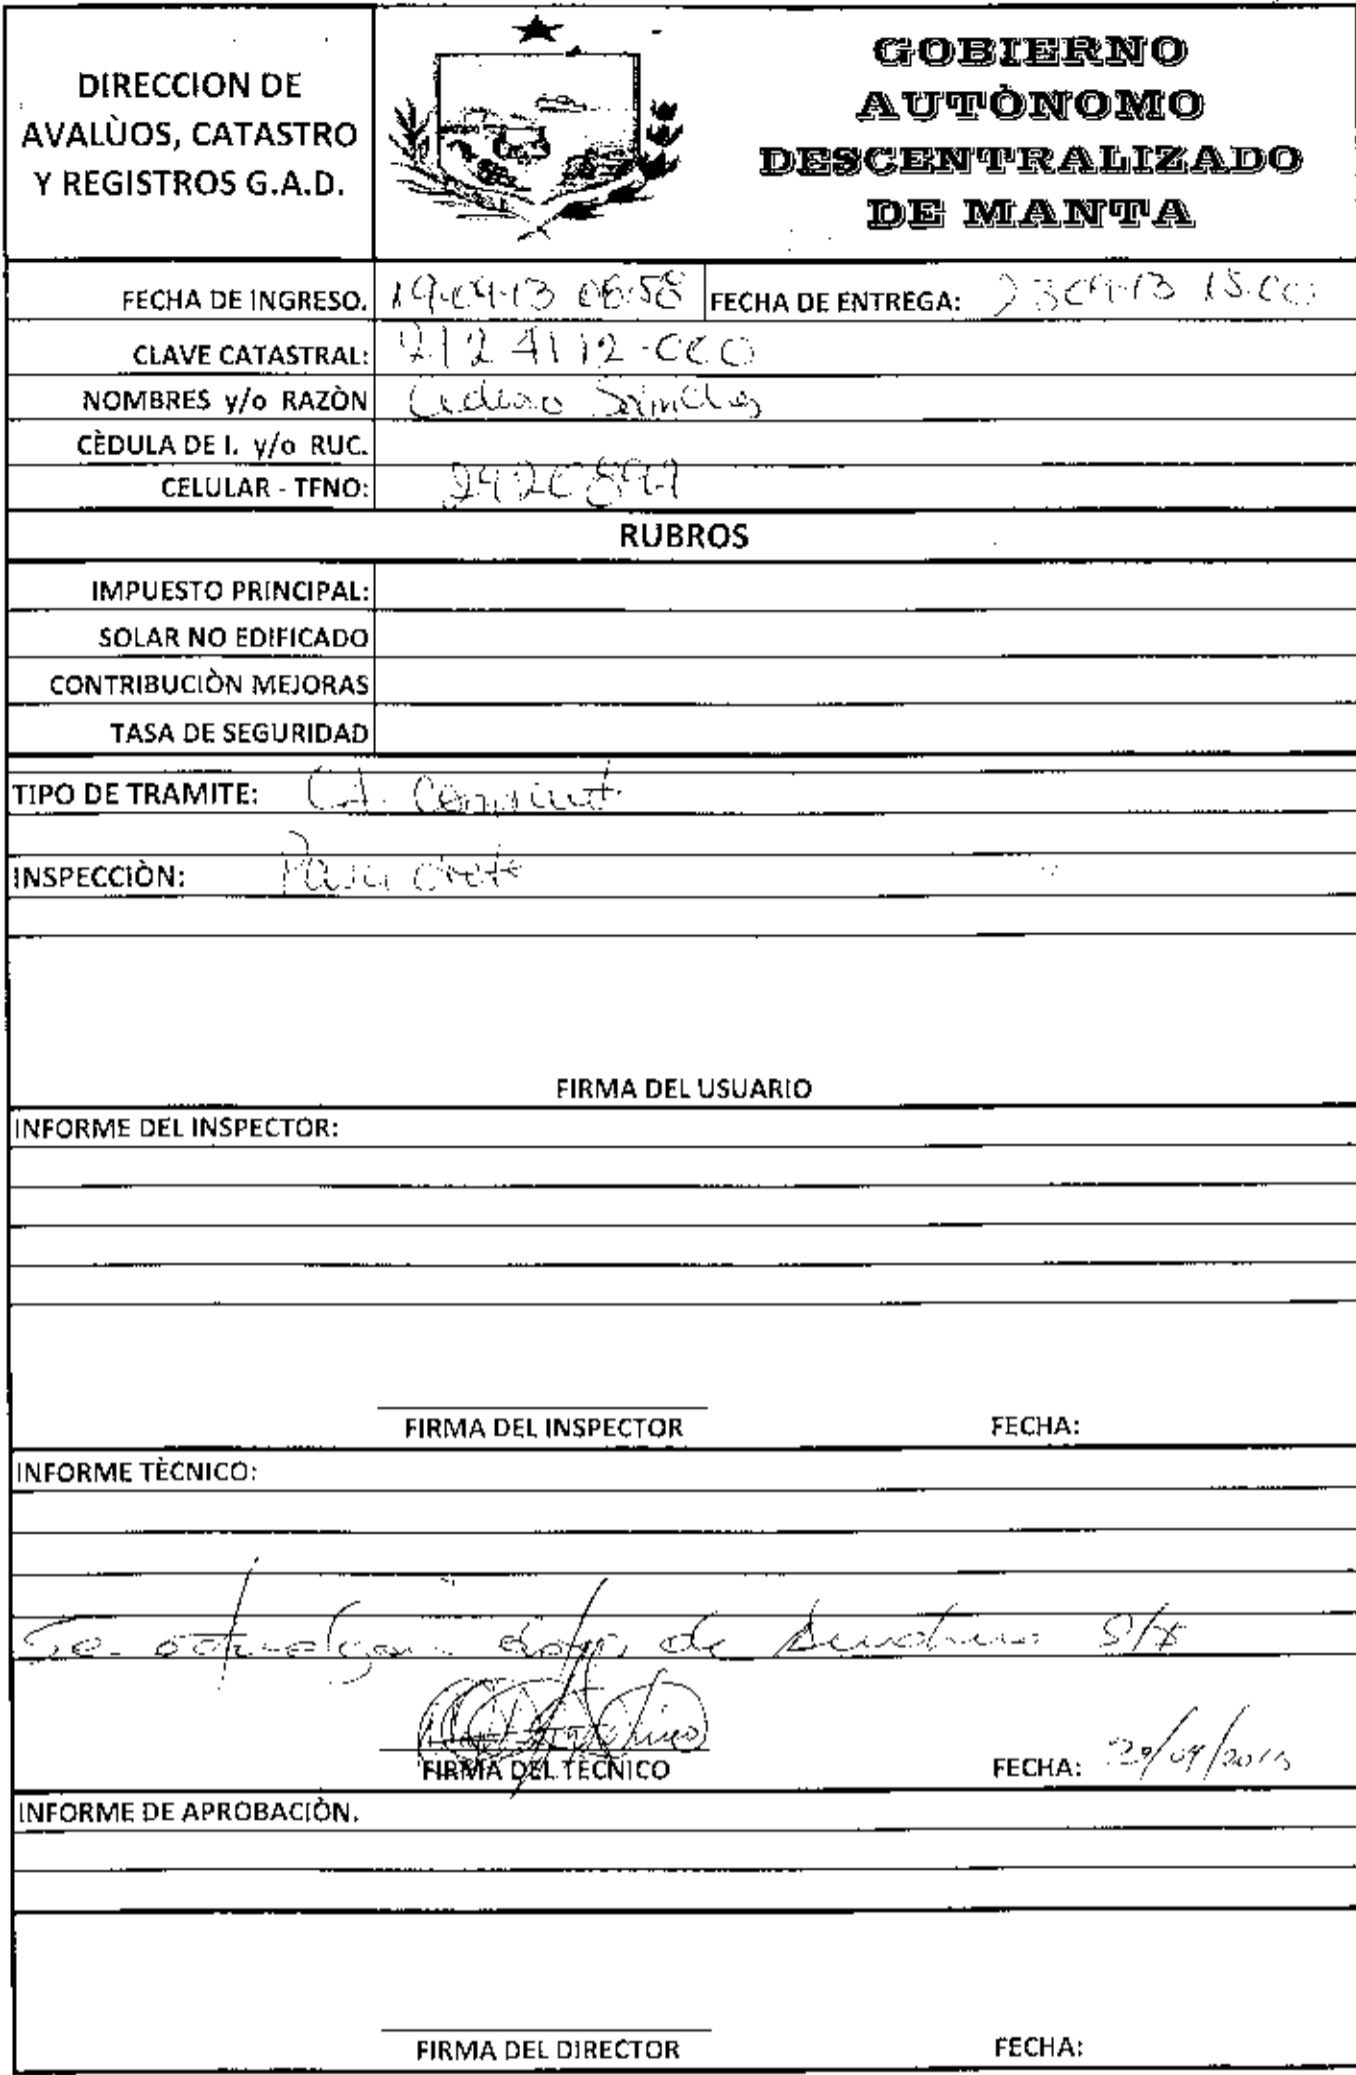 DIRECCION DE
AVALÙOS, CATASTRO
Y REGISTROS G.A.D.
GOBIERNO
AUTÒNOMO
DESCENTRALIZADO
DE MANTA
FECHA DE INGRESO. 19-09-13 08:58 FECHA DE ENTREGA: 23-09-13 15:00
CLAVE CATASTRAL: 2124112-000
NOMBRES y/o RAZÒN Cedeño Sánchez
CÈDULA DE I. y/o RUC.
CELULAR - TFNO:
RUBROS
IMPUESTO PRINCIPAL:
SOLAR NO EDIFICADO
CONTRIBUCIÒN MEJORAS
TASA DE SEGURIDAD
TIPO DE TRAMITE:
INSPECCIÒN:
FIRMA DEL USUARIO
INFORME DEL INSPECTOR:
FIRMA DEL INSPECTOR FECHA:
INFORME TÈCNICO:
Se de S/#
FIRMA DEL TÈCNICO FECHA: /09/2013
INFORME DE APROBACIÒN.
FIRMA DEL DIRECTOR FECHA: